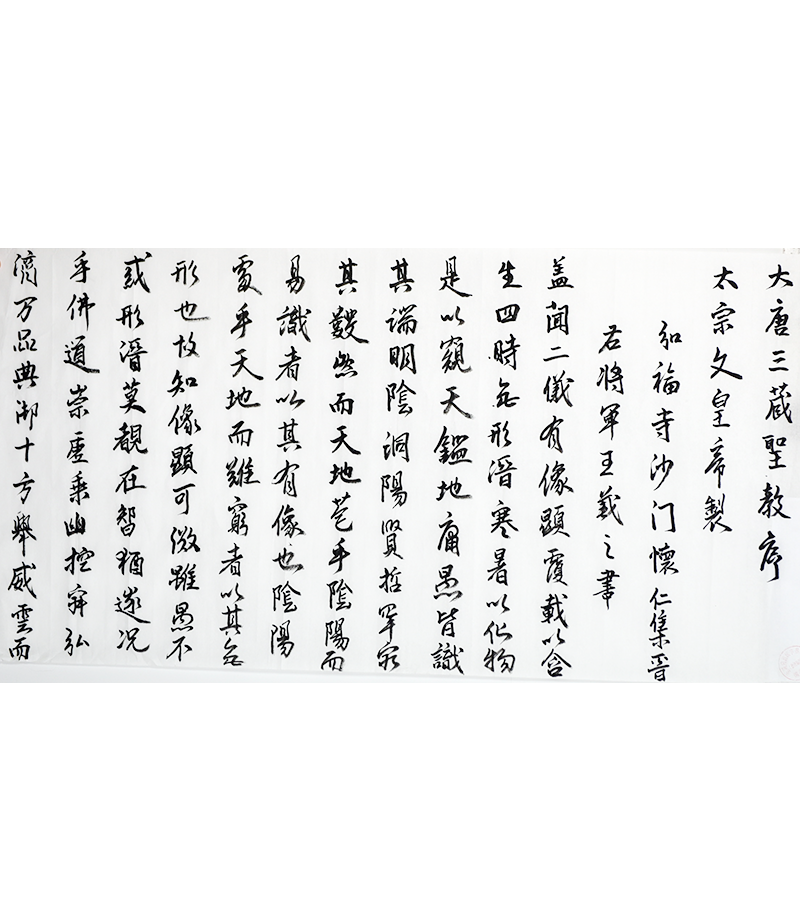 大唐三藏聖教序
太宗文皇帝製
弘福寺沙门懷仁集晋
右将軍王羲之書
盖闻二儀有像顯覆載以含
生四時無形潛寒暑以化物
是以窺天鑑地庸愚皆識
其端明陰洞陽賢哲罕窮
其數然而天地苞乎陰陽而
易識者以其有像也陰陽
處乎天地而難窮者以其無
形也故知像顯可徵雖愚不
惑形潛莫覩在智猶迷况
乎佛道崇虛乘幽控寂弘
濟万品典御十方舉威靈而